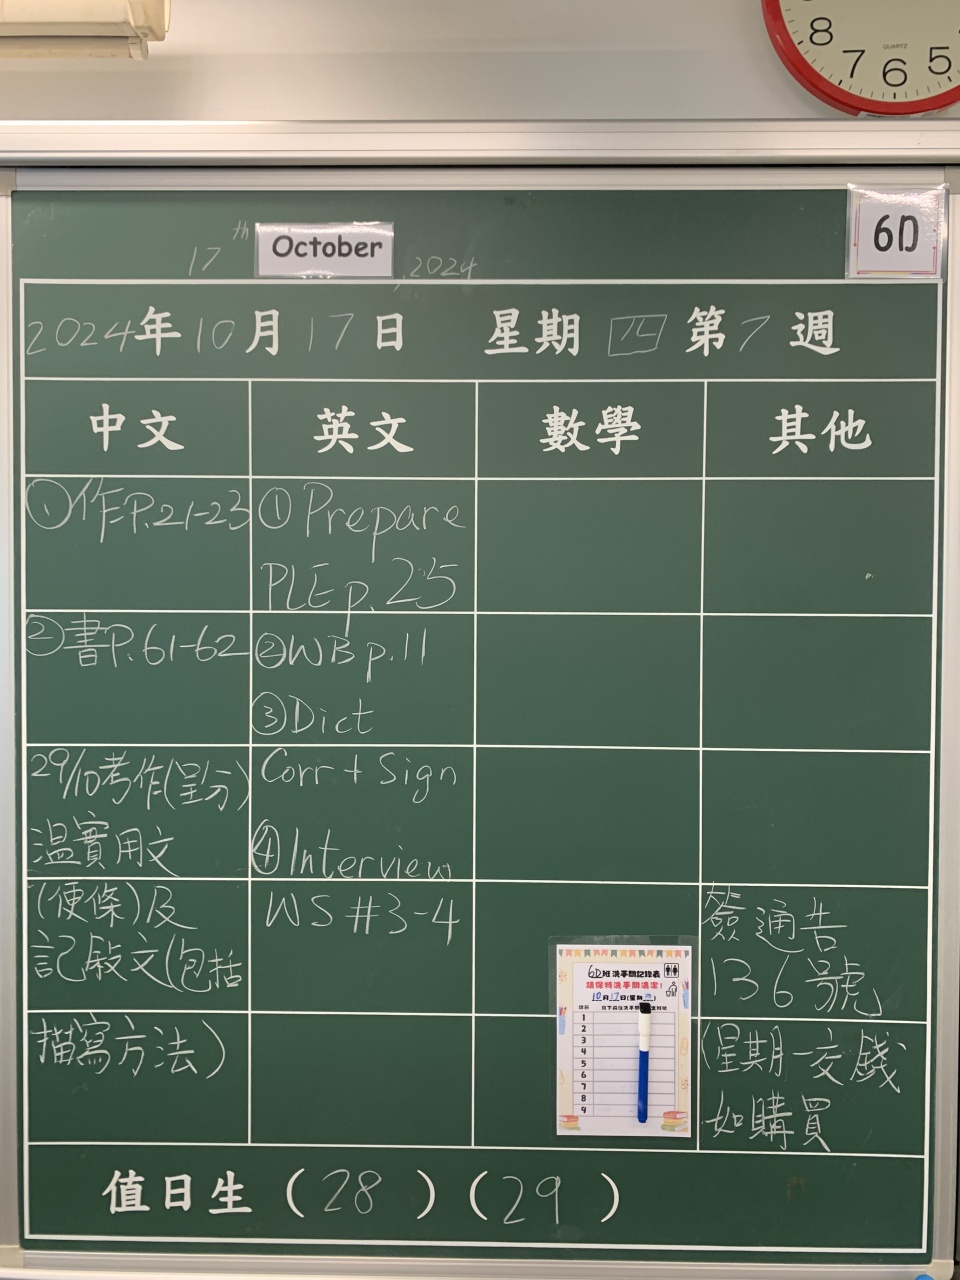 8
7
6
5
QUARTZ
17th October, 2024
6D
2024年10月17日 星期四 第7週
中文 英文 數學 其他
①作P.21-23
②書P.61-62
29/10考作(呈分)
温實用文
(便條)及
記敍文(包括
描寫方法)
①Prepare
PLE p.25
②WB p.11
③Dict
Corr + Sign
④Interview
WS #3-4
簽通告
136號
(星期一交錢
如購買
6D班洗手間記錄表
請保持洗手間清潔!
10月17日(星期四)
1
2
3
4
5
6
7
8
9
值日生 (28) (29)